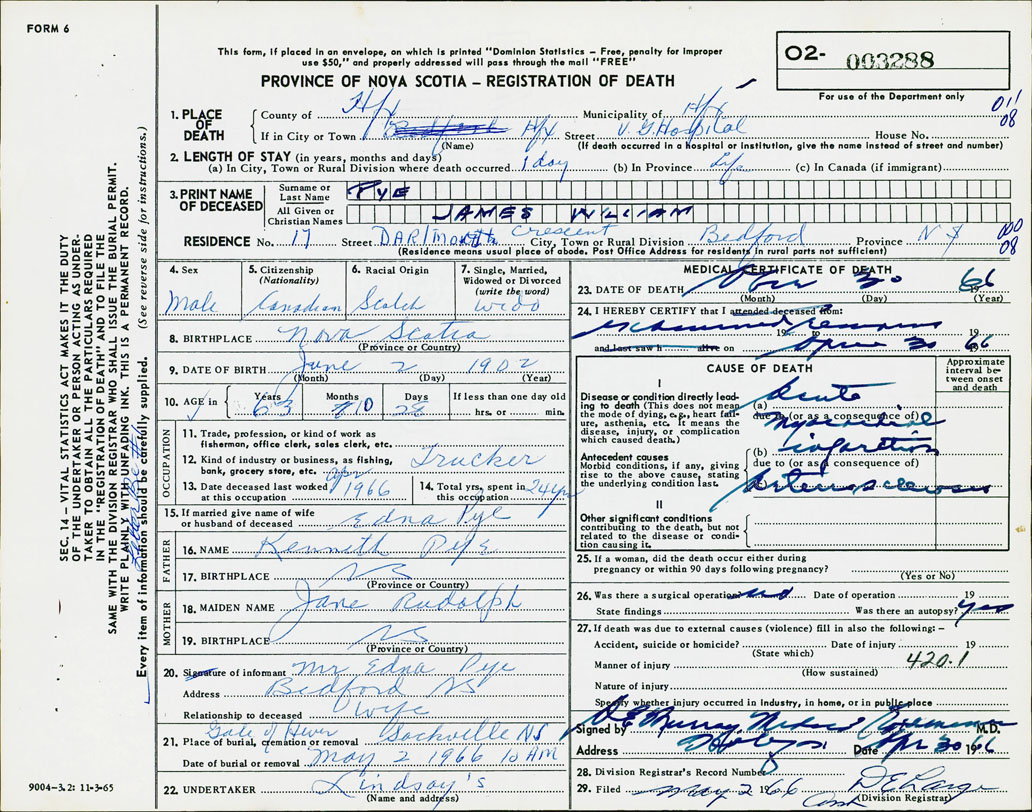 FORM 6
This form, if placed in an envelope, on which is printed "Dominion Statistics – Free, penalty for improper
use $50," and properly addressed will pass through the mail "FREE"
PROVINCE OF NOVA SCOTIA – REGISTRATION OF DEATH
O2- 003288
For use of the Department only
011
08
1. PLACE OF DEATH
County of Hfx Municipality of Hfx
If in City or Town Bedford Hfx Street V.G Hospital House No.
(Name) (If death occurred in a Hospital or Institution, give the name instead of street and number)
2. LENGTH OF STAY (in years, months and days)
(a) In City, Town or Rural Division where death occurred 1 day (b) In Province Life (c) In Canada (if immigrant)
3. PRINT NAME OF DECEASED
Surname or Last Name PYE
All Given or Christian Names JAMES WILLIAM
RESIDENCE No. 17 Street DARTMOUTH Crescent City, Town or Rural Division Bedford Province N S
000
08
(Residence means usual place of abode. Post Office Address for residents in rural parts not sufficient)
4. Sex Male
5. Citizenship (Nationality) Canadian
6. Racial Origin Scotch
7. Single, Married, Widowed or Divorced (write the word)
8. BIRTHPLACE Nova Scotia
(Province or Country)
9. DATE OF BIRTH June 2 1902
(Month) (Day) (Year)
10. AGE in Years 63 Months 10 Days 28 If less than one day old
hrs. or min.
OCCUPATION
11. Trade, profession, or kind of work as
fisherman, office clerk, sales clerk, etc.
12. Kind of industry or business, as fishing,
bank, grocery store, etc. Trucker
13. Date deceased last worked
at this occupation Apr 1966
14. Total yrs. spent in
this occupation 24 yrs
15. If married give name of wife
or husband of deceased Edna Pye
FATHER
16. NAME Kenneth Pye
17. BIRTHPLACE NS
(Province or Country)
MOTHER
18. MAIDEN NAME Jane Rudolph
19. BIRTHPLACE NS
(Province or Country)
20. Signature of informant Mr Edna Pye
Address Bedford NS
Relationship to deceased Wife
21. Place of burial, cremation or removal Sackville NS
Date of burial or removal May 2 1966 10 AM
22. UNDERTAKER Lindsay's
(Name and address)
MEDICAL CERTIFICATE OF DEATH
23. DATE OF DEATH 30 1966
(Month) (Day) (Year)
24. I HEREBY CERTIFY that I attended deceased from:
examined remains 19 to 19
and last saw h alive on April 30 1966
CAUSE OF DEATH
Approximate interval between onset and death
I
Disease or condition directly leading to death (This does not mean
the mode of dying, e.g., heart failure, asthenia, etc. It means the
disease, injury, or complication
which caused death.)
(a) Acute
due to (or as a consequence of)
Myocardial
Antecedent causes
Morbid conditions, if any, giving
rise to the above cause, stating
the underlying condition last.
(b) infarction
due to (or as a consequence of)
(c) Arteriosclerosis
II
Other significant conditions
contributing to the death, but not
related to the disease or condition causing it.
25. If a woman, did the death occur either during
pregnancy or within 90 days following pregnancy?
(Yes or No)
26. Was there a surgical operation? no Date of operation 19
State findings Was there an autopsy? yes
27. If death was due to external causes (violence) fill in also the following: –
Accident, suicide or homicide? Date of injury 19
(State which)
Manner of injury 420.1
(How sustained)
Nature of injury
Specify whether injury occurred in Industry, in home, or in public place
Signed by D E Murray Medical Examiner M.D.
Address Date Apr 30 1966
28. Division Registrar's Record Number
29. Filed May 2 1966
(Division Registrar)
SEC. 14 – VITAL STATISTICS ACT MAKES IT THE DUTY
OF THE UNDERTAKER OR PERSON ACTING AS UNDERTAKER TO OBTAIN ALL THE PARTICULARS REQUIRED
IN THE "REGISTRATION OF DEATH" AND TO FILE THE
SAME WITH THE DIVISION REGISTRAR WHO SHALL ISSUE THE BURIAL PERMIT.
WRITE PLAINLY WITH UNFADING INK. THIS IS A PERMANENT RECORD.
Every item of information should be carefully supplied. (See reverse side for instructions.)
9004-3.2: 11-3-65